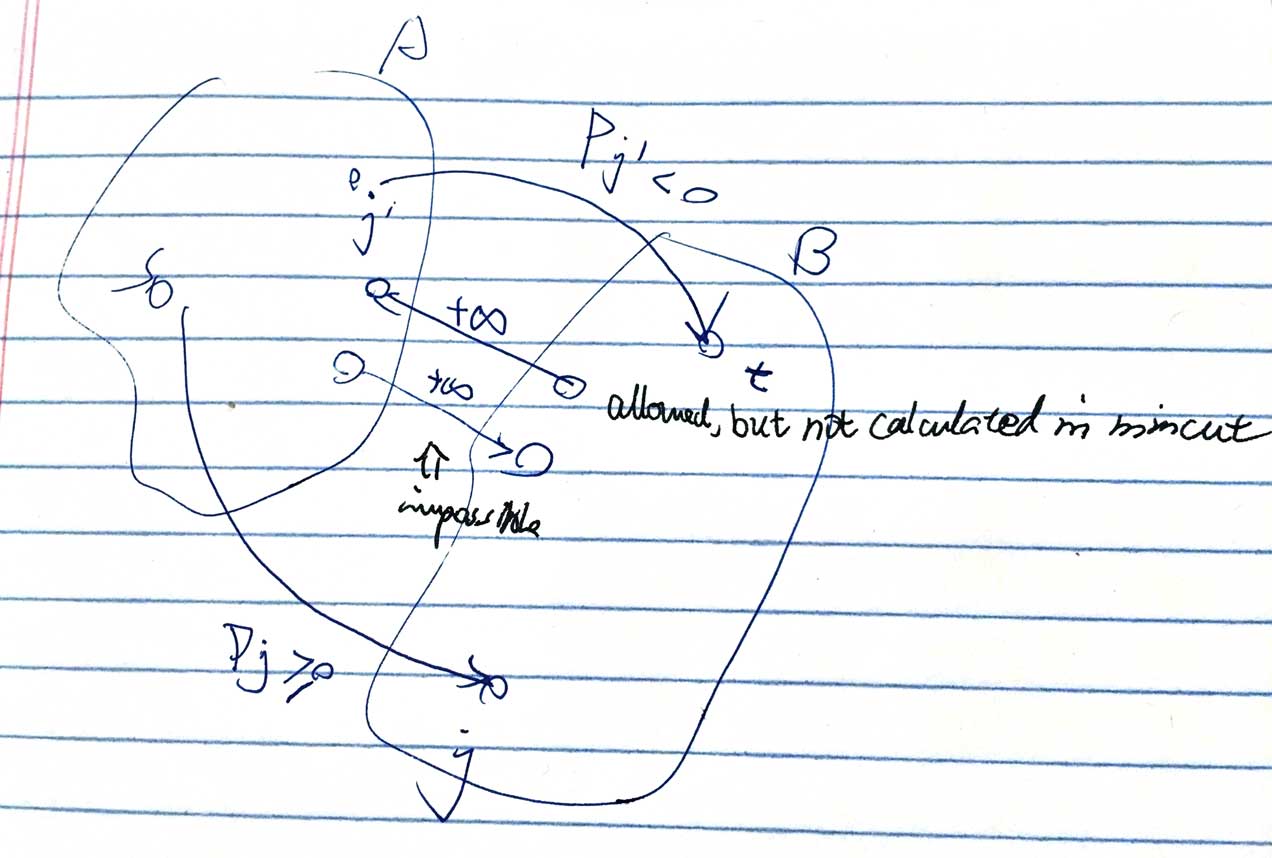 A
Pj' < 0
j'
B
s
+∞
t
+∞
allowed, but not calculated in mincut
⇑
impossible
Pj ≥ 0
j